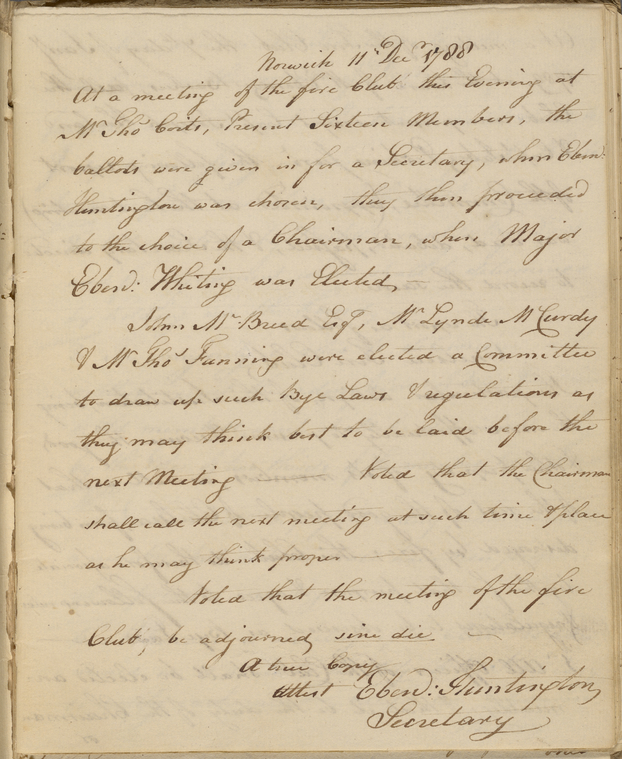 Norwich 11th Decr 1788
At a meeting of the fire Club this Evening at
Mr Thos Coits, Present Sixteen Members, the
ballots were given in for a Secretary, when Ebenr:
Huntington was chosen, they then proceeded
to the choice of a Chairman, when Major
Ebenr: Whiting was Elected,
John Mc Breed Esqr, Mr Lynde McCurdy
& Mr Thos Fanning were elected a Committee
to draw up such Bye Laws & regulations as
they may think best to be laid before the
next Meeting — Voted that the Chairman
shall call the next meeting at such time & place
as he may think proper —
Voted that the meeting of the fire
Club, be adjourned, sine die —
A true Copy
Attest Ebenr: Huntington,
Secretary